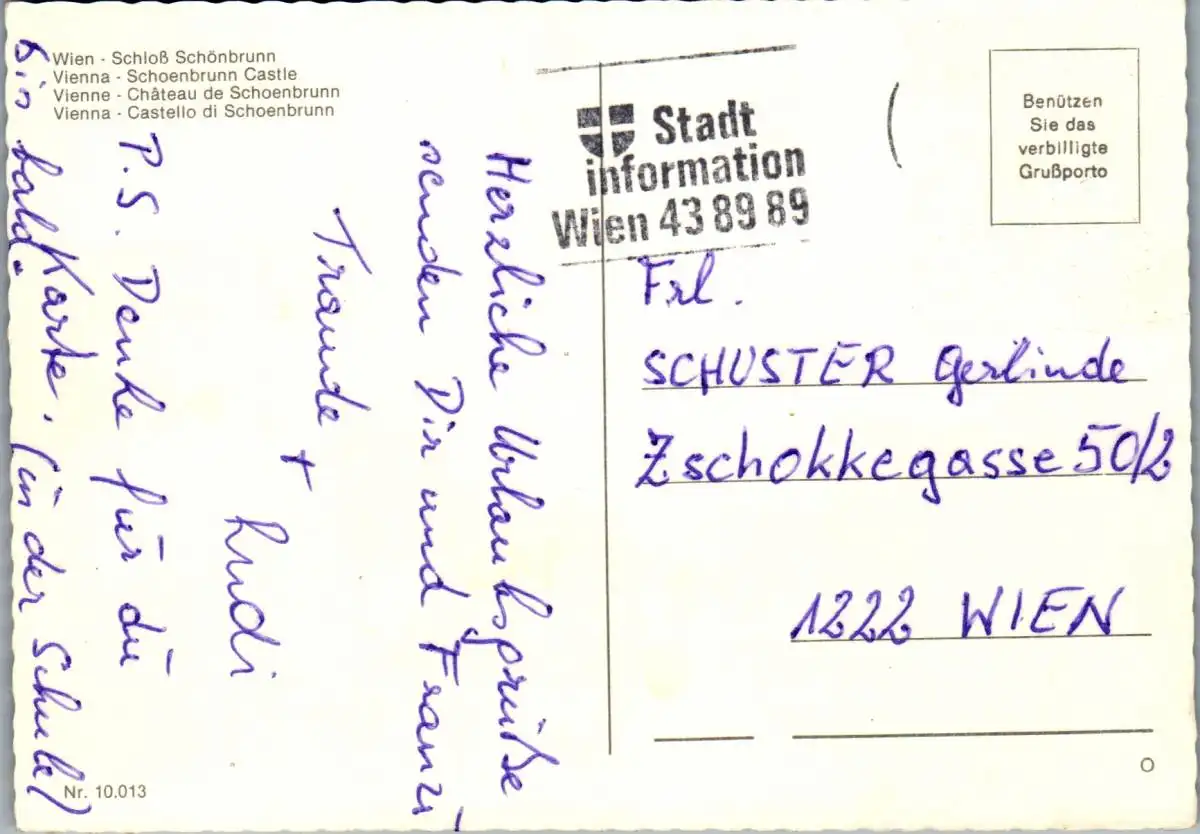 Wien - Schloß Schönbrunn
Vienna - Schoenbrunn Castle
Vienne - Château de Schoenbrunn
Vienna - Castello di Schoenbrunn
Stadt
information
Wien 43 89 89
Benützen
Sie das
verbilligte
Grußporto
Herzliche Urlaubsgrüße
senden Dir und Franzi
Traude
+
Rudi
P.S. Danke für die
Karte. (in der Schule)
Bis bald.
Frl.
SCHUSTER Gerlinde
Zschokkegasse 50/2
1222 WIEN
Nr. 10.013
O